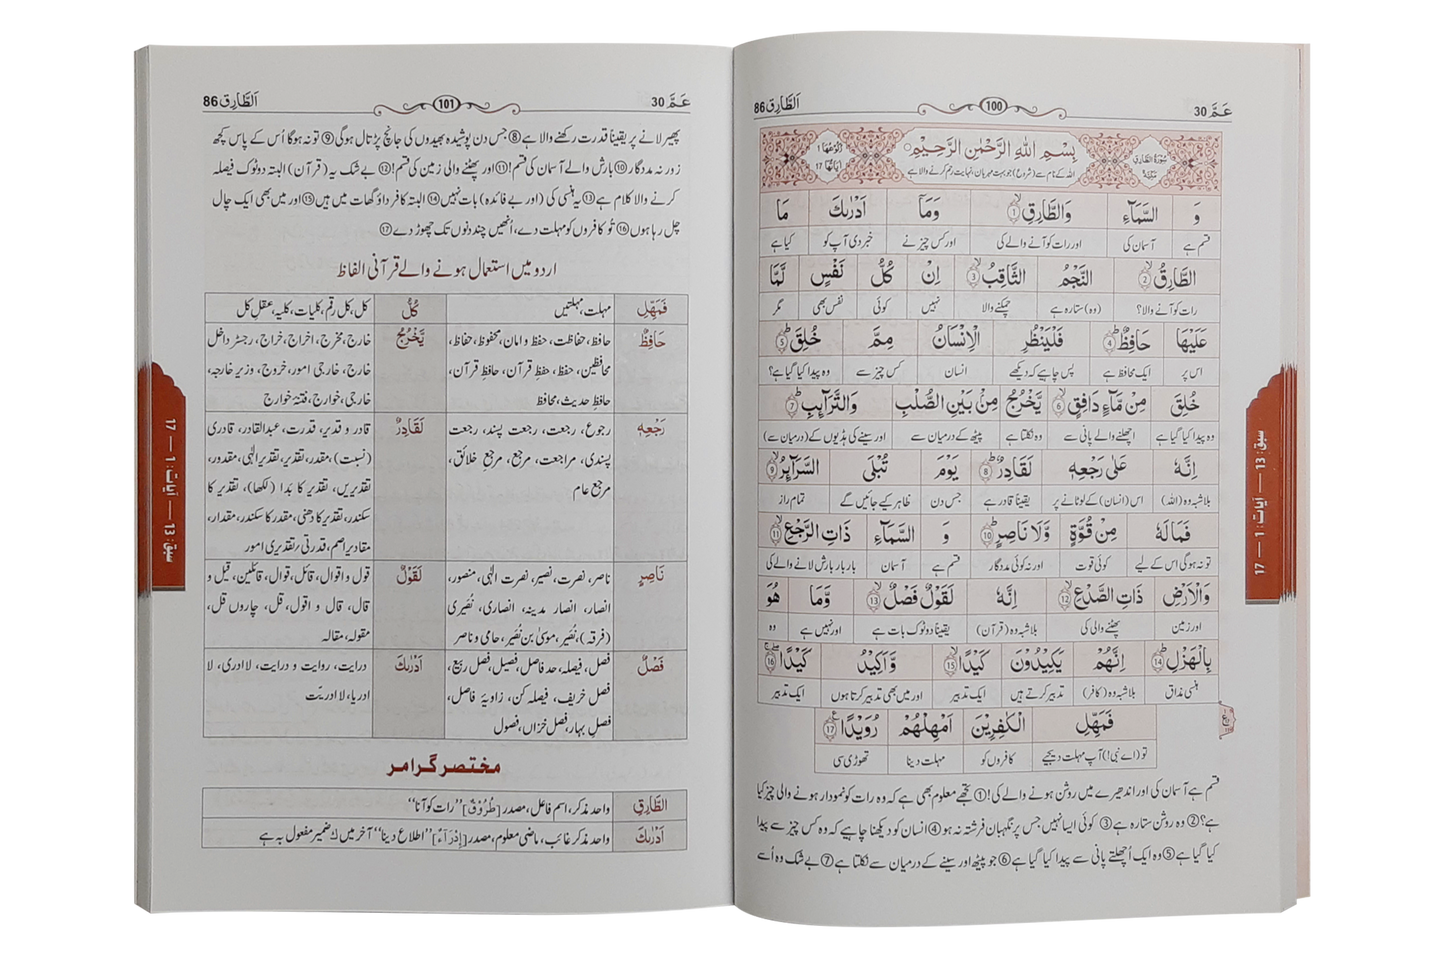 عَمَّ 30
100
اَلطَّارِق 86
سُوْرَةُ الطَّارِقِ
مَكِّيَّةٌ
بِسْمِ اللّٰهِ الرَّحْمٰنِ الرَّحِيْمِ
اللہ کے نام سے (شروع) جو بہت مہربان، نہایت رحم کرنے والا ہے
رُكُوْعُهَا 1
اٰيَاتُهَا 17
وَ السَّمَآءِ وَالطَّارِقِ ۙ﴿1﴾ وَمَآ اَدْرٰىكَ مَا
قسم ہے آسمان کی اور رات کو آنے والے کی اور کس چیز نے خبر دی آپ کو کیا ہے
الطَّارِقُ ۙ﴿2﴾ النَّجْمُ الثَّاقِبُ ۙ﴿3﴾ اِنْ كُلُّ نَفْسٍ لَّمَّا
رات کو آنے والا؟ (وہ) ستارہ ہے چمکنے والا نہیں کوئی نفس بھی مگر
عَلَيْهَا حَافِظٌ ؕ﴿4﴾ فَلْيَنْظُرِ الْاِنْسَانُ مِمَّ خُلِقَ ؕ﴿5﴾
اس پر ایک محافظ ہے پس چاہیے کہ دیکھے انسان کس چیز سے وہ پیدا کیا گیا ہے؟
خُلِقَ مِنْ مَّآءٍ دَافِقٍ ۙ﴿6﴾ يَّخْرُجُ مِنْۢ بَيْنِ الصُّلْبِ وَالتَّرَآئِبِ ؕ﴿7﴾
وہ پیدا کیا گیا ہے اچھلنے والے پانی سے وہ نکلتا ہے پیٹھ کے درمیان سے اور سینے کی ہڈیوں کے (درمیان سے)
اِنَّهٗ عَلٰى رَجْعِهٖ لَقَادِرٌ ؕ﴿8﴾ يَوْمَ تُبْلَى السَّرَآئِرُ ۙ﴿9﴾
بلاشبہ وہ (اللہ) اس (انسان) کے لوٹانے پر یقیناً قادر ہے جس دن ظاہر کیے جائیں گے تمام راز
فَمَا لَهٗ مِنْ قُوَّةٍ وَّلَا نَاصِرٍ ؕ﴿10﴾ وَ السَّمَآءِ ذَاتِ الرَّجْعِ ۙ﴿11﴾
تو نہ ہوگی اس کے لیے کوئی قوت اور نہ کوئی مددگار قسم ہے آسمان بار بار بارش لانے والے کی
وَالْاَرْضِ ذَاتِ الصَّدْعِ ۙ﴿12﴾ اِنَّهٗ لَقَوْلٌ فَصْلٌ ۙ﴿13﴾ وَّمَا هُوَ
اور زمین پھٹنے والی کی بلاشبہ وہ (قرآن) یقیناً دوٹوک بات ہے اور نہیں ہے وہ
بِالْهَزْلِ ؕ﴿14﴾ اِنَّهُمْ يَكِيْدُوْنَ كَيْدًا ۙ﴿15﴾ وَّاَكِيْدُ كَيْدًا ۚۖ﴿16﴾
ہنسی مذاق بلاشبہ وہ (کافر) تدبیر کرتے ہیں ایک تدبیر اور میں بھی تدبیر کرتا ہوں ایک تدبیر
فَمَهِّلِ الْكٰفِرِيْنَ اَمْهِلْهُمْ رُوَيْدًا ﴿17﴾
تو (اے نبی!) آپ مہلت دیجیے کافروں کو مہلت دینا تھوڑی سی
قسم ہے آسمان کی اور اندھیرے میں روشن ہونے والے کی! ① تجھے معلوم بھی ہے کہ وہ رات کو نمودار ہونے والی چیز کیا
ہے؟ ② وہ روشن ستارہ ہے ③ کوئی ایسا نہیں جس پر نگہبان فرشتہ نہ ہو ④ انسان کو دیکھنا چاہیے کہ وہ کس چیز سے پیدا
کیا گیا ہے ⑤ وہ ایک اُچھلتے پانی سے پیدا کیا گیا ہے ⑥ جو پیٹھ اور سینے کے درمیان سے نکلتا ہے ⑦ بے شک وہ اُسے
سبق: 13 — آیات: 1 — 17
عَمَّ 30
101
اَلطَّارِق 86
پھیر لانے پر یقیناً قدرت رکھنے والا ہے ⑧ جس دن پوشیدہ بھیدوں کی جانچ پڑتال ہوگی ⑨ تو نہ ہوگا اُس کے پاس کچھ
زور نہ مددگار ⑩ بارش والے آسمان کی قسم! ⑪ اور پھٹنے والی زمین کی قسم! ⑫ بے شک یہ (قرآن) البتہ دوٹوک فیصلہ
کرنے والا کلام ہے ⑬ یہ ہنسی کی (اور بے فائدہ) بات نہیں ⑭ البتہ کافر داؤ گھات میں ہیں ⑮ اور میں بھی ایک چال
چل رہا ہوں ⑯ تُو کافروں کو مہلت دے، اُنھیں چند دنوں تک چھوڑ دے ⑰
اردو میں استعمال ہونے والے قرآنی الفاظ
فَمَهِّلِ مہلت، مہلتیں كُلُّ کل، کل رقم، کلیات، کلیہ، عقلِ کل
حَافِظٌ حافظ، حفاظت، حفظ و امان، محفوظ، حفاظ، يَّخْرُجُ خارج، مخرج، اخراج، خراج، رجسٹر داخل
محافظین، حفظ، حفظِ قرآن، حافظِ قرآن، خارج، خارجی امور، خروج، وزیر خارجہ،
حافظِ حدیث، محافظ خارجی، خوارج، فتنۂ خوارج
رَجْعِهٖ رجوع، رجعت، رجعت پسند، رجعت لَقَادِرٌ قادر و قدیر، قدرت، عبدالقادر، قادری
پسندی، مراجعت، مرجع، مرجعِ خلائق، (نسبت)، مقدر، تقدیر، تقدیرِ الٰہی، مقدور،
مرجع عام تقدیریں، تقدیر کا بَدا (لکھا)، تقدیر کا
سکندر، تقدیر کا دھنی، مقدر کا سکندر، مقدار،
مقادیر اصم، قدرتی / تقدیری امور
نَاصِرٍ ناصر، نصرت، نصیر، نصرتِ الٰہی، منصور، لَقَوْلٌ قول و اقوال، قائل، قوال، قائلین، قیل و
انصار، انصارِ مدینہ، انصاری، نُصَیری قال، قال و اقول، قل، چاروں قل،
(فرقہ)، نُصَیر، موسیٰ بن نُصَیر، حامی و ناصر مقولہ، مقالہ
فَصْلٌ فصل، فیصلہ، حدِ فاصل، فصیل، فصلِ ربیع، اَدْرٰىكَ درایت، روایت و درایت، لاادری، لا
فصلِ خریف، فیصلہ کن، زاویۂ فاصل، ادریا، لاادریّت
فصلِ بہار، فصلِ خزاں، فصول
مختصر گرامر
الطَّارِقِ واحد مذکر، اسم فاعل، مصدر [طُرُوْقٌ] ”رات کو آنا“
اَدْرٰىكَ واحد مذکر غائب، ماضی معلوم، مصدر [اِدْرَآءٌ] ”اطلاع دینا“ آخر میں كَ ضمیر مفعول بہ ہے
سبق: 13 — آیات: 1 — 17